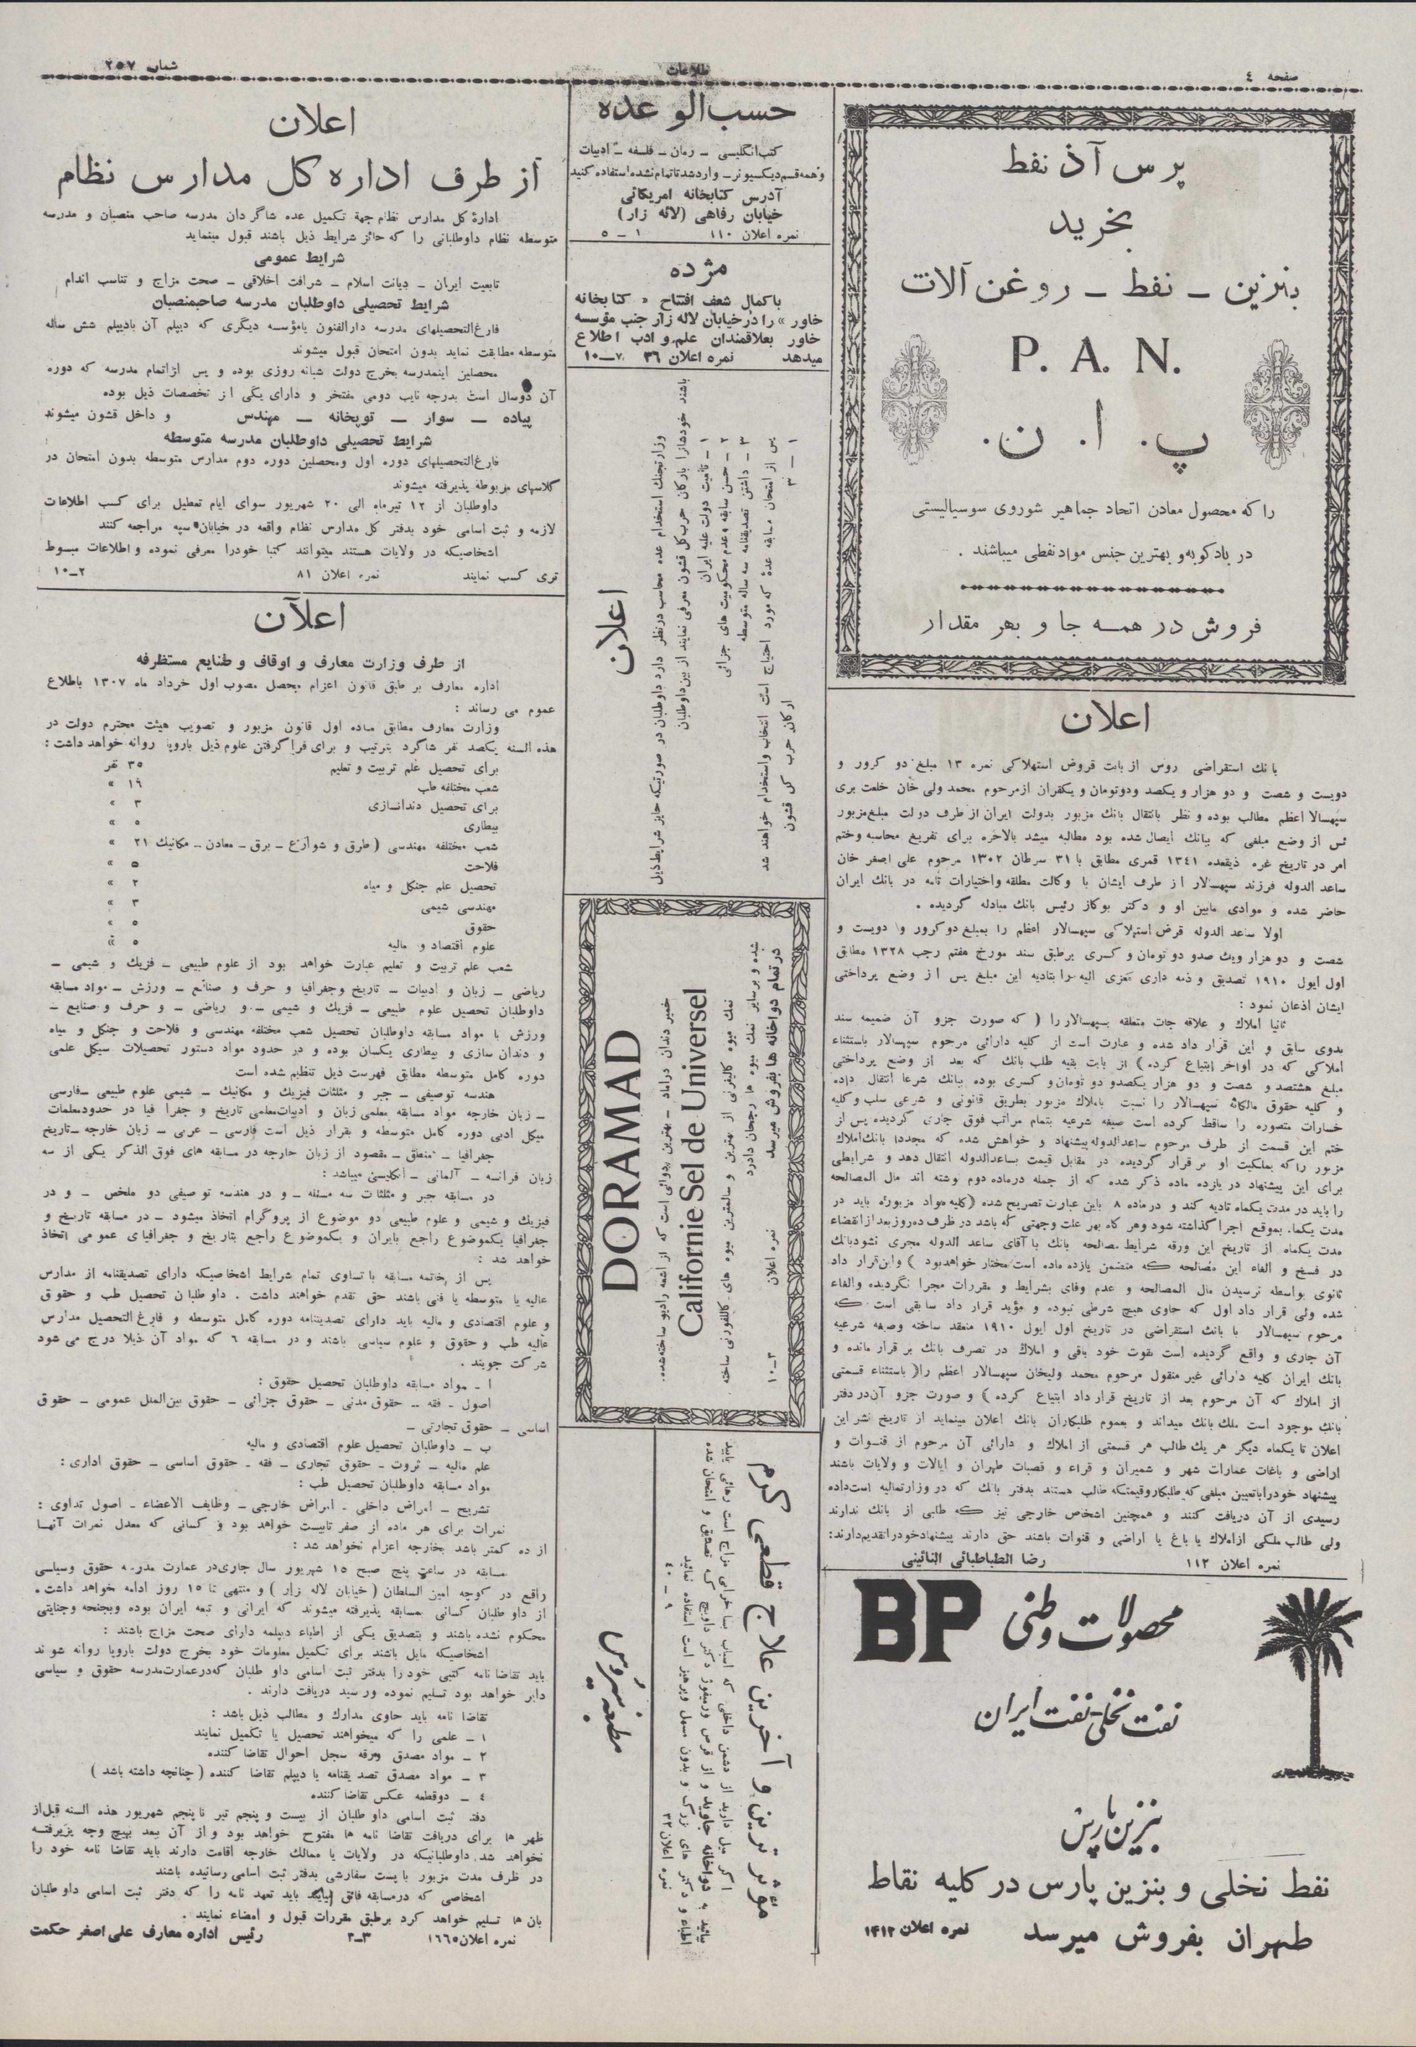 صفحه ٤
اطلاعات
شماره ٢٥٧
پرس آذ نفط
بخرید
بنزین ـ نفط ـ روغن آلات
P. A. N.
پ. ا. ن.
را که محصول معادن اتحاد جماهیر شوروی سوسیالیستی
در بادکوبه و بهترین جنس مواد نفطی میباشند .
فروش در همه جا و بهر مقدار
اعلان
بانك استقراضی روس از بابت قروض استهلاکی نمره ۱۳ مبلغ دو کرور و
دویست و شصت و دو هزار و یکصد ودوتومان و یکقران ازمرحوم محمد ولی خان خلعت بری
سپهسالار اعظم مطالب بوده و نظر بانتقال بانك مزبور بدولت ایران از طرف دولت مبلغ مزبور
پس از وضع مبلغی که ببانك ایصال شده بود مطالبه میشد بالاخره برای تفریغ محاسبه وختم
امر در تاریخ غره ذیقعده ۱۳٤۱ قمری مطابق با ۳۱ سرطان ۱۳۰۲ مرحوم علی اصغر خان
ساعد الدوله فرزند سپهسالار از طرف ایشان با وکالت مطلقه واختیارات تامه در بانك ایران
حاضر شده و موادی مابین او و دکتر بوکاز رئیس بانك مبادله گردیده .
اولا ساعد الدوله قرض استهلاکی سپهسالار اعظم را بمبلغ دو کرور و دویست و
شصت و دو هزار ویك صدو دو تومان و کسری برطبق سند مورخ هفتم رجب ۱۳۲۸ مطابق
اول ایول ۱۹۱۰ تصدیق و ذمه داری معزی الیه را بتادیه این مبلغ پس از وضع پرداختی
ایشان اذعان نمود :
ثانیا املاك و علاقه جات متعلقه بسپهسالار را ( که صورت جزو آن ضمیمه سند
بدوی سابق و این قرار داد شده و عبارت است از کلیه دارائی مرحوم سپهسالار باستثناء
املاکی که در اواخر ابتیاع کرده ) از بابت بقیه طلب بانك که بعد از وضع پرداختی
مبلغ هشتصد و شصت و دو هزار یکصدو دو تومان و کسری بوده ببانك شرعا انتقال داده
و کلیه حقوق مالکانه سپهسالار را نسبت باملاك مزبور بطریق قانونی و شرعی سلب وکلیه
خسارات متصوره را ساقط کرده است صیغه شرعیه بتمام مراتب فوق جاری گردیده پس از
ختم این قسمت از طرف مرحوم ساعدالدوله پیشنهاد و خواهش شده که مجددا بانك املاك
مزبور را که بملکیت او بر قرار گردیده در مقابل قیمت بساعدالدوله انتقال دهد و شرایطی
برای این پیشنهاد در یازده ماده ذکر شده که از جمله درماده دوم وشته اند مال المصالحه
را باید در مدت یکماه تادیه کند و در ماده ۸ باین عبارت تصریح شده (کلیه مواد مزبوره باید در
مدت یکماه بموقع اجرا گذاشته شود وهر گاه بهر علت وجهتی که باشد در ظرف ده روز بعد از انقضاء
مدت یکماه از تاریخ این ورقه شرایط مصالحه بانك با آقای ساعد الدوله مجری نشود بانك
در فسخ و الغاء این مصالحه که متضمن یازده ماده است مختار خواهد بود ) و این قرار داد
ثانوی بواسطه نرسیدن مال المصالحه و عدم وفای بشرایط و مقررات مجرا نگردیده والغاء
شده ولی قرار داد اول که حاوی هیچ شرطی نبوده و مؤید قرار داد سابقی است که
مرحوم سپهسالار با بانك استقراضی در تاریخ اول ایول ۱۹۱۰ منعقد ساخته وصیغه شرعیه
آن جاری و واقع گردیده است بقوت خود باقی و املاك در تصرف بانك بر قرار مانده و
بانك ایران کلیه دارائی غیر منقول مرحوم محمد ولیخان سپهسالار اعظم را( باستثناء قسمتی
از املاك که آن مرحوم بعد از تاریخ قرار داد ابتیاع کرده ) و صورت جزو آن در دفتر
بانك موجود است ملك بانك میداند و بعموم طلبکاران بانك اعلان مینماید از تاریخ نشر این
اعلان تا یکماه دیگر هر یك طالب هر قسمتی از املاك و دارائی آن مرحوم از قنوات و
اراضی و باغات عمارات شهر و شمیران و قراء و قصبات طهران و ایالات و ولایات باشند
پیشنهاد خود را باتعیین مبلغی که طلبکار وقیمتی که طالب هستند بدفتر بانك که در وزارت مالیه است داده
رسیدی از آن دریافت کنند و همچنین اشخاص خارجی نیز که طلبی از بانك ندارند
ولی طالب ملکی ازاملاك یا باغ یا اراضی و قنوات باشند حق دارند پیشنهاد خود را تقدیم دارند:
نمره اعلان ۱۱۲
رضا الطباطبائی النائینی
محصولات وطنی BP
نفت نخلی - نفت ایران
بنزین پارس
نفط نخلی و بنزین پارس در کلیه نقاط
طهران بفروش میرسد
نمره اعلان ۱۴۱۲
حسب الو عده
کتب انگلیسی ـ رمان ـ فلسفه ـ ادبیات
وهمه قسم دیکسیونر ـ وارد شد تا تمام نشده استفاده کنید
آدرس کتابخانه امریکائی
خیابان رفاهی (لاله زار)
نمره اعلان ۱۱۰ ۱ ـ ٥
مژده
باکمال شعف افتتاح « کتابخانه
خاور » را در خیابان لاله زار جنب مؤسسه
خاور بعلاقمندان علم و ادب اطلاع
میدهد نمره اعلان ۳۶ ۷ـ۱۰
اعلان
وزارتجنك استخدام عده محاسب درنظر دارد داوطلبان در صورتیکه حایز شرایط ذیل
باشند خودشانرا بارکان حرب کل قشون معرفی نمایند از بین داوطلبان
۱ ـ تابعیت دولت علیه ایران
۲ ـ حسن سابقه وعدم محکومیت های جزائی
۳ ـ داشتن تصدیقنامه سه ساله متوسطه
پس از امتحان مسابقه عدۀ که مورد احتیاج است انتخاب واستخدام خواهند شد
۱ ـ ۳
ارکان حرب کل قشون
DORAMAD
خمیر دندان درآماد ـ بهترین دوائی است که از اشعه رادیو ساخته شده.
Californie Sel de Universel
نمك میوه کالیفرنی از بهترین و سالمترین میوه های کالیفورنی ساخته
شده و برسایر نمك میوه ها رجحان دارد
در تمام دواخانه ها بفروش میرسد
نمره اعلان
۳ـ۱۰
مؤثر ترین و آخرین علاج قطعی کرم
اگر میل دارید از دشمن داخلی که اسباب بسا خرابی مزاج است رهائی یابید
بیائید به دواخانه جاوید و از قرص ورمیفوژ دکتر داویچ که تصدیق و امتحان شده
اطباء و دکتر های بزرگ و بدون مسهل وپرهیز است استفاده نمائید
نمره اعلان ۳۲
۹ ـ ٤۰
مطبعه سیروس
اعلان
از طرف اداره کل مدارس نظام
ادارۀ کل مدارس نظام جهة تکمیل عده شاگردان مدرسه صاحب منصبان و مدرسه
متوسطه نظام داوطلبانی را که حائز شرایط ذیل باشند قبول مینماید
شرایط عمومی
تابعیت ایران ـ دیانت اسلام ـ شرافت اخلاقی ـ صحت مزاج و تناسب اندام
شرایط تحصیلی داوطلبان مدرسه صاحبمنصبان
فارغ التحصیلهای مدرسه دارالفنون یامؤسسه دیگری که دیپلم آن بادیپلم شش ساله
متوسطه مطابقت نماید بدون امتحان قبول میشوند
محصلین اینمدرسه بخرج دولت شبانه روزی بوده و پس ازاتمام مدرسه که دوره
آن دوسال است بدرجه نایب دومی مفتخر و دارای یکی از تخصصات ذیل بوده
پیاده ـ سوار ـ توپخانه ـ مهندس و داخل قشون میشوند
شرایط تحصیلی داوطلبان مدرسه متوسطه
فارغ التحصیلهای دوره اول ومحصلین دوره دوم مدارس متوسطه بدون امتحان در
کلاسهای مربوطه پذیرفته میشوند
داوطلبان از ۱۲ تیرماه الی ۲۰ شهریور سوای ایام تعطیل برای کسب اطلاعات
لازمه و ثبت اسامی خود بدفتر کل مدارس نظام واقعه در خیابان سپه مراجعه کنند
اشخاصیکه در ولایات هستند میتوانند کتبا خودرا معرفی نموده و اطلاعات مبسوط
تری کسب نمایند نمره اعلان ۸۱ ۲ـ۱۰
اعلان
از طرف وزارت معارف و اوقاف و صنایع مستظرفه
اداره معارف بر طبق قانون اعزام محصل مصوب اول خرداد ماه ۱۳۰۷ باطلاع
عموم می رساند :
وزارت معارف مطابق ماده اول قانون مزبور و تصویب هیئت محترم دولت در
هذه السنه یکصد نفر شاگرد بترتیب و برای فرا گرفتن علوم ذیل باروپا روانه خواهد داشت:
برای تحصیل علم تربیت و تعلیم ۳٥ نفر
شعب مختلفه طب ۱۹ »
برای تحصیل دندانسازی ۳ »
بیطاری ٥ »
شعب مختلفه مهندسی (طرق و شوارع ـ برق ـ معادن ـ مکانیك ۲۱ »
فلاحت ٥ »
تحصیل علم جنگل و میاه ۲ »
مهندسی شیمی ۳ »
حقوق ٥ »
علوم اقتصاد و مالیه ٥ »
شعب علم تربیت و تعلیم عبارت خواهد بود از علوم طبیعی ـ فزیك و شیمی ـ
ریاضی ـ زبان و ادبیات ـ تاریخ وجغرافیا و حرف و صنایع ـ ورزش ـ مواد مسابقه
داوطلبان تحصیل علوم طبیعی ـ فزیك و شیمی ـ و ریاضی ـ و حرف و صنایع ـ
ورزش با مواد مسابقه داوطلبان تحصیل شعب مختلفه مهندسی و فلاحت و جنگل و میاه
و دندان سازی و بیطاری یکسان بوده و در حدود مواد دستور تحصیلات سیکل علمی
دوره کامل متوسطه مطابق فهرست ذیل تنظیم شده است
هندسه توصیفی ـ جبر و مثلثات فیزیك و مکانیك ـ شیمی علوم طبیعی ـ فارسی
ـ زبان خارجه مواد مسابقه معلمی زبان و ادبیات معلمی تاریخ و جغرا فیا در حدود معلمات
سیکل ادبی دوره کامل متوسطه و بقرار ذیل است فارسی ـ عربی ـ زبان خارجه ـ تاریخ
جغرافیا ـ منطق ـ مقصود از زبان خارجه در مسابقه های فوق الذکر یکی از سه
زبان فرانسه ـ آلمانی ـ انگلیسی میباشد :
در مسابقه جبر و مثلثات سه مسئله ـ و در هندسه توصیفی دو ملخص ـ و در
فیزیك و شیمی و علوم طبیعی دو موضوع از پروگرام اتخاذ میشود ـ در مسابقه تاریخ و
جغرافیا یکموضوع راجع بایران و یکموضوع راجع بتاریخ و جغرافیای عمومی اتخاذ
خواهد شد :
پس از خاتمه مسابقه با تساوی تمام شرایط اشخاصیکه دارای تصدیقنامه از مدارس
عالیه یا متوسطه یا فنی باشند حق تقدم خواهند داشت . داوطلبان تحصیل طب و حقوق
و علوم اقتصادی و مالیه باید دارای تصدیقنامه دوره کامل متوسطه و فارغ التحصیل مدارس
عالیه طب و حقوق و علوم سیاسی باشند و در مسابقه ۶ که مواد آن ذیلا درج می شود
شرکت جویند .
ا ـ مواد مسابقه داوطلبان تحصیل حقوق :
اصول ـ فقه ـ حقوق مدنی ـ حقوق جزائی ـ حقوق بین الملل عمومی ـ حقوق
اساسی ـ حقوق تجارتی ـ
ب ـ داوطلبان تحصیل علوم اقتصادی و مالیه
علم مالیه ـ ثروت ـ حقوق تجاری ـ فقه ـ حقوق اساسی ـ حقوق اداری :
مواد مسابقه داوطلبان تحصیل طب :
تشریح ـ امراض داخلی ـ امراض خارجی ـ وظایف الاعضاء ـ اصول تداوی :
نمرات برای هر ماده از صفر تابیست خواهد بود و کسانی که معدل نمرات آنها
از ده کمتر باشد بخارجه اعزام نخواهد شد :
مسابقه در ساعت پنج صبح ۱٥ شهریور سال جاری در عمارت مدرسه حقوق وسیاسی
واقع در کوچه امین السلطان ( خیابان لاله زار ) و منتهی تا ۱٥ روز ادامه خواهد داشت.
از داوطلبان کسانی بمسابقه پذیرفته میشوند که ایرانی و تبعه ایران بوده وبجنحه وجنایتی
محکوم نشده باشند و بتصدیق یکی از اطباء دیپلمه دارای صحت مزاج باشند :
اشخاصیکه مایل باشند برای تکمیل معلومات خود بخرج دولت باروپا روانه شوند
باید تقاضا نامه کتبی خود را بدفتر ثبت اسامی داو طلبان که در عمارت مدرسه حقوق و سیاسی
دایر خواهد بود تسلیم نموده ورسید دریافت دارند .
تقاضا نامه باید حاوی مدارك و مطالب ذیل باشد :
۱ ـ علمی را که میخواهند تحصیل یا تکمیل نمایند
۲ ـ مواد مصدق ورقه سجل احوال تقاضا کننده
۳ ـ مواد مصدق تصدیقنامه یا دیپلم تقاضا کننده ( چنانچه داشته باشد )
٤ ـ دوقطعه عکس تقاضا کننده
دفتر ثبت اسامی داوطلبان از بیست و پنجم تیر تا پنجم شهریور هذه السنه قبل از
ظهر ها برای دریافت تقاضا نامه ها مفتوح خواهد بود و از آن ببعد بهیچ وجه پذیرفته
نخواهد شد. داوطلبانیکه در ولایات یا ممالك خارجه اقامت دارند باید تقاضا نامه خود را
در ظرف مدت مزبور با پست سفارشی بدفتر ثبت اسامی رسانیده باشند
اشخاصی که درمسابقه فائق آیند باید تعهد نامه را که دفتر ثبت اسامی داوطلبان
بان ها تسلیم خواهد کرد برطبق مقررات قبول و امضاء نمایند .
نمره اعلان ۱۶۶٥ ۳ـ۲ رئیس اداره معارف علی اصغر حکمت